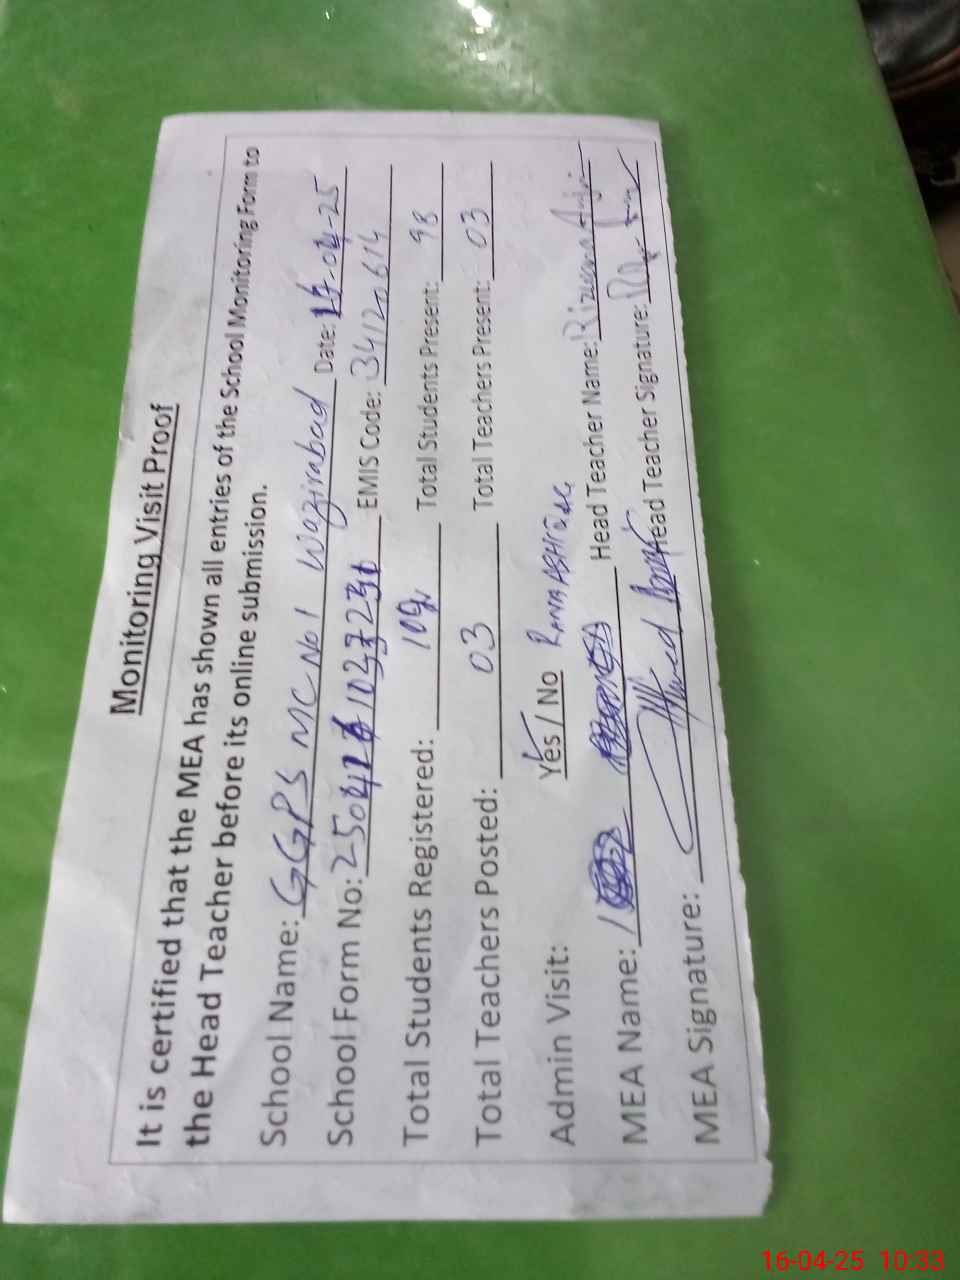 Monitoring Visit Proof
It is certified that the MEA has shown all entries of the School Monitoring Form to
the Head Teacher before its online submission.
School Name: GGPS MC No 1 Wazirabad Date: -04-25
School Form No: EMIS Code: 34120614
Total Students Registered: 109 Total Students Present: 98
Total Teachers Posted: 03 Total Teachers Present: 03
Admin Visit: Yes / No RANA ASHFAQ
MEA Name: Head Teacher Name: Rizwana
MEA Signature: Head Teacher Signature:
16-04-25 10:33